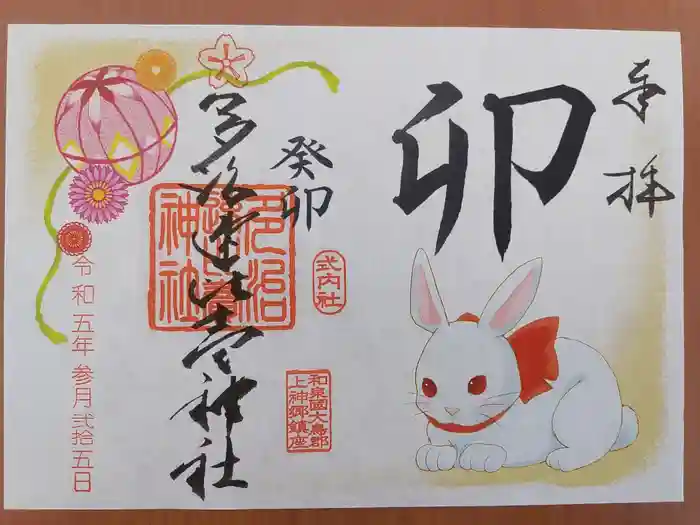 奉拝
卯
癸卯
式内社
和泉國大鳥郡
上神郷鎮座
多治速比売神社
令和五年 参月 弐拾五日